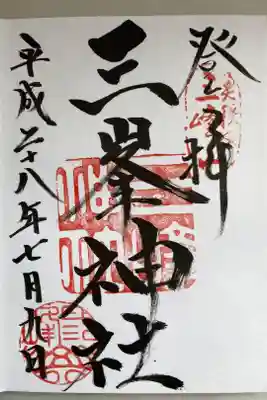 登拝
三峯神社
平成二十八年七月九日